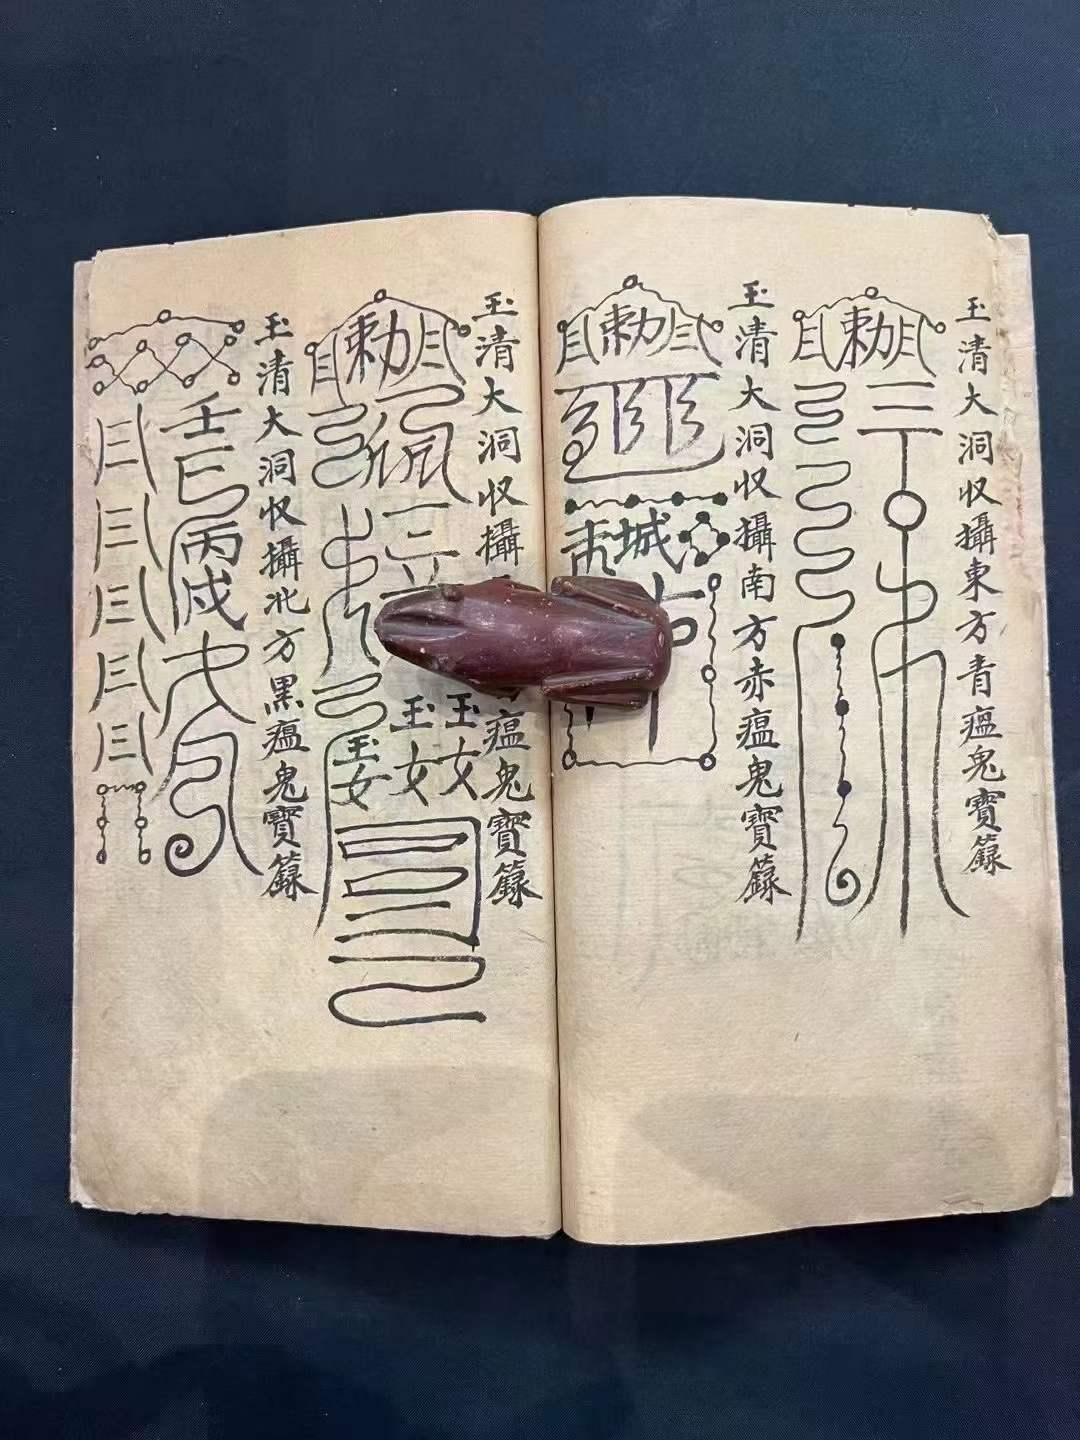 玉清大洞収攝東方青瘟鬼寶籙
勅
玉清大洞収攝南方赤瘟鬼寶籙
勅
城
玉清大洞収攝
瘟鬼寶籙
勅
玉女
玉女
玉女
玉清大洞収攝北方黑瘟鬼寶籙
壬
丙戌